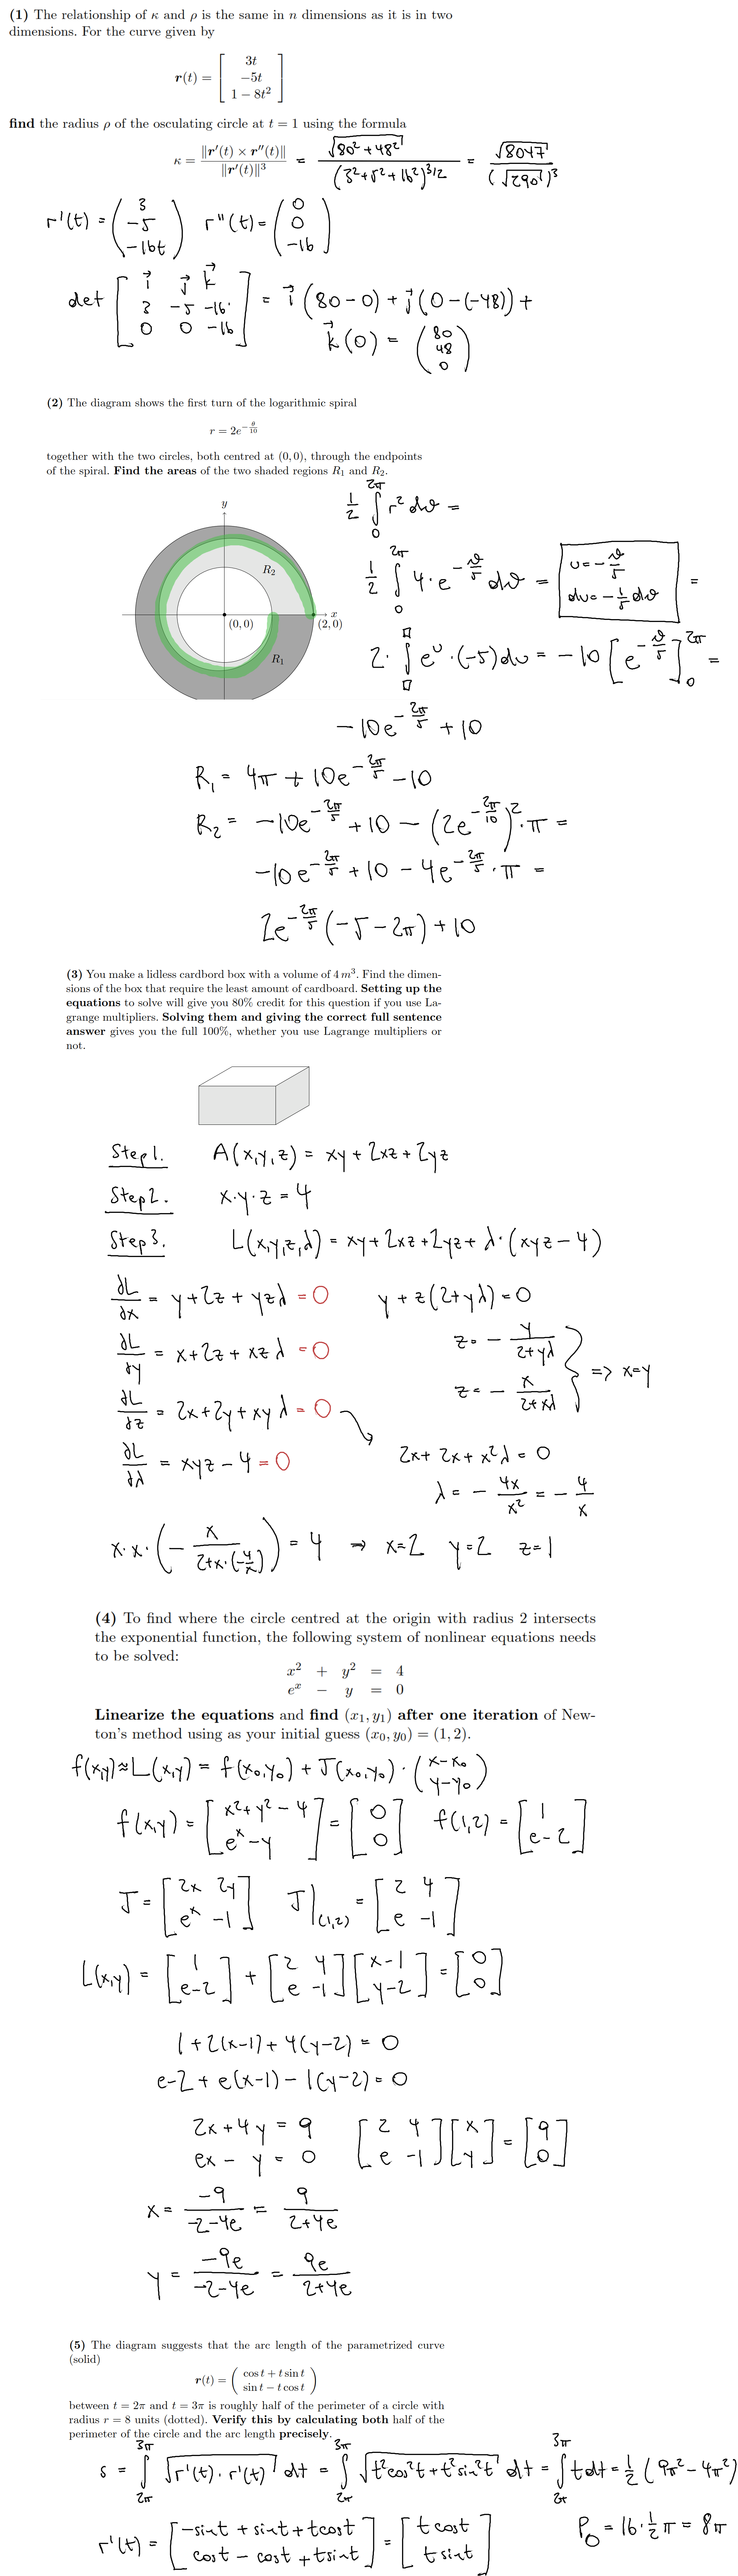 (1) The relationship of κ and ρ is the same in n dimensions as it is in two
dimensions. For the curve given by
r(t) = [ 3t
-5t
1 − 8t² ]
find the radius ρ of the osculating circle at t = 1 using the formula
κ = ‖r′(t) × r″(t)‖ / ‖r′(t)‖³ = √(80² + 48²) / (3² + 5² + 16²)^(3/2) = √8047 / (√290)³
r'(t) = (3, -5, -16t) r''(t) = (0, 0, -16)
det [ i j k
3 -5 -16
0 0 -16 ] = i (80 - 0) + j (0 - (-48)) +
k (0) = (80, 48, 0)
(2) The diagram shows the first turn of the logarithmic spiral
r = 2e^(−θ/10)
together with the two circles, both centred at (0, 0), through the endpoints
of the spiral. Find the areas of the two shaded regions R₁ and R₂.
y
R₂
x
(0,0)
(2,0)
R₁
1/2 ∫₀^2π r² dϑ =
1/2 ∫₀^2π 4 · e^(-ϑ/5) dϑ = [ u = -ϑ/5
du = -1/5 dϑ ] =
2 · ∫_□^□ e^u · (-5) du = -10 [e^(-ϑ/5)]₀^2π =
-10e^(-2π/5) + 10
R₁ = 4π + 10e^(-2π/5) - 10
R₂ = -10e^(-2π/5) + 10 - (2e^(-2π/10))² · π =
-10e^(-2π/5) + 10 - 4e^(-2π/5) · π =
2e^(-2π/5) (-5 - 2π) + 10
(3) You make a lidless cardbord box with a volume of 4 m³. Find the dimen-
sions of the box that require the least amount of cardboard. Setting up the
equations to solve will give you 80% credit for this question if you use La-
grange multipliers. Solving them and giving the correct full sentence
answer gives you the full 100%, whether you use Lagrange multipliers or
not.
Step1. A(x,y,z) = xy + 2xz + 2yz
Step2. x·y·z = 4
Step3. L(x,y,z,λ) = xy + 2xz + 2yz + λ·(xyz - 4)
∂L/∂x = y + 2z + yzλ = 0 y + z(2 + yλ) = 0
∂L/∂y = x + 2z + xzλ = 0 z = - y/(2+yλ)
z = - x/(2+xλ) } => x=y
∂L/∂z = 2x + 2y + xyλ = 0
∂L/∂λ = xyz - 4 = 0 2x + 2x + x²λ = 0
λ = - 4x/x² = - 4/x
x·x·(- x/(2+x·(-4/x))) = 4 => x=2 y=2 z=1
(4) To find where the circle centred at the origin with radius 2 intersects
the exponential function, the following system of nonlinear equations needs
to be solved:
x² + y² = 4
eˣ − y = 0
Linearize the equations and find (x₁, y₁) after one iteration of New-
ton's method using as your initial guess (x₀, y₀) = (1, 2).
f(x,y) ≈ L(x,y) = f(x₀,y₀) + J(x₀,y₀) · (x-x₀, y-y₀)
f(x,y) = [x²+y²-4, eˣ-y] = [0, 0] f(1,2) = [1, e-2]
J = [2x 2y
eˣ -1] J|(1,2) = [2 4
e -1]
L(x,y) = [1, e-2] + [2 4
e -1] [x-1, y-2] = [0, 0]
1 + 2(x-1) + 4(y-2) = 0
e-2 + e(x-1) - 1(y-2) = 0
2x + 4y = 9
ex - y = 0 [2 4
e -1] [x, y] = [9, 0]
x = -9/(-2-4e) = 9/(2+4e)
y = -9e/(-2-4e) = 9e/(2+4e)
(5) The diagram suggests that the arc length of the parametrized curve
(solid)
r(t) = ( cos t + t sin t
sin t − t cos t )
between t = 2π and t = 3π is roughly half of the perimeter of a circle with
radius r = 8 units (dotted). Verify this by calculating both half of the
perimeter of the circle and the arc length precisely.
s = ∫_2π^3π √(r'(t) · r'(t)) dt = ∫_2π^3π √(t²cos²t + t²sin²t) dt = ∫_2π^3π t dt = 1/2 (9π² - 4π²)
r'(t) = [-sint + sint + tcost
cost - cost + tsint] = [t cost
t sint] P₀ = 16 · 1/2 π = 8π